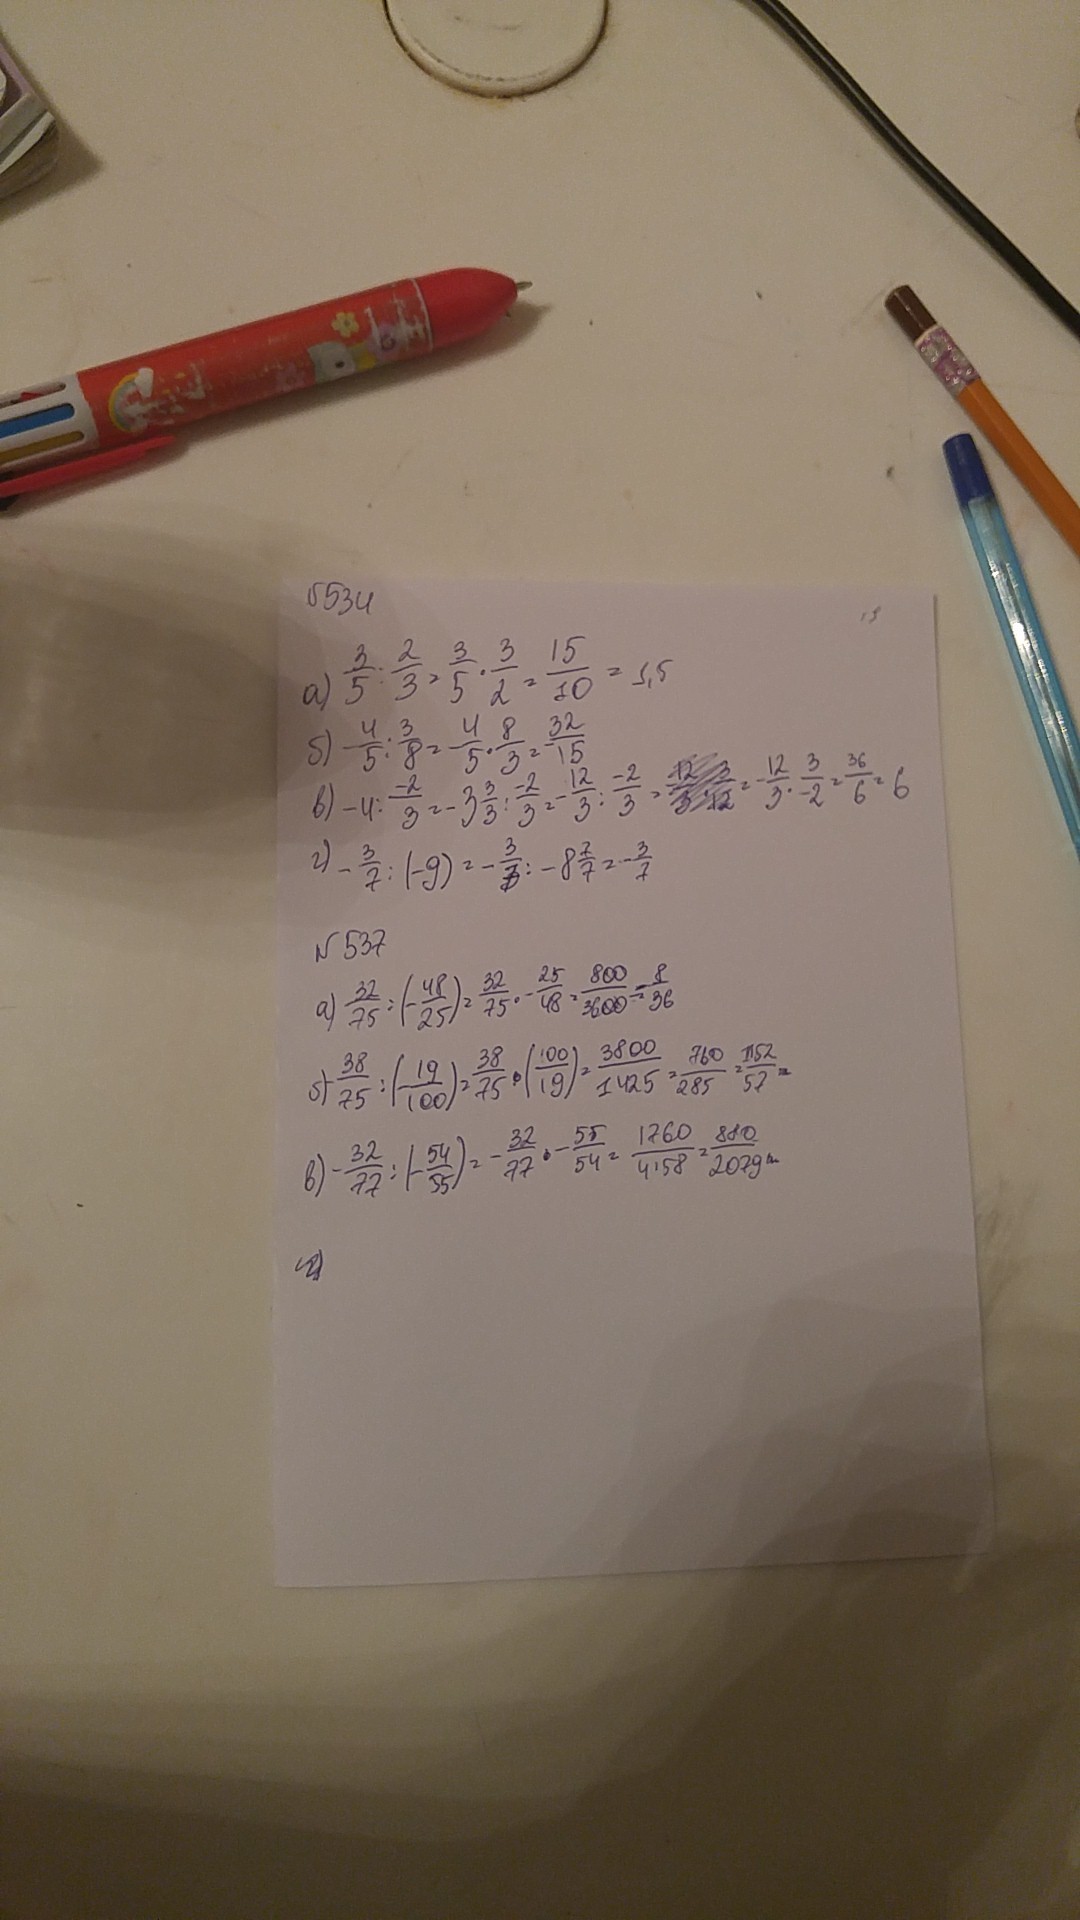 №534
а) 3/5 : 2/3 = 3/5 · 3/2 = 15/10 = 1,5
б) -4/5 : 3/8 = -4/5 · 8/3 = -32/15
в) -4 : -2/3 = -3 3/3 : -2/3 = -12/3 : -2/3 = = -12/3 · 3/-2 = 36/6 = 6
г) -3/7 : (-9) = -3/7 : -8 7/7 = -3/7
№537
а) 32/75 : (-48/25) = 32/75 · -25/48 = 800/3600 = -8/36
б) -38/75 : (-19/100) = 38/75 · (100/19) = 3800/1425 = 760/285 = 152/57 =
в) -32/77 : (-54/55) = -32/77 · -55/54 = 1760/4158 = 880/2079 =